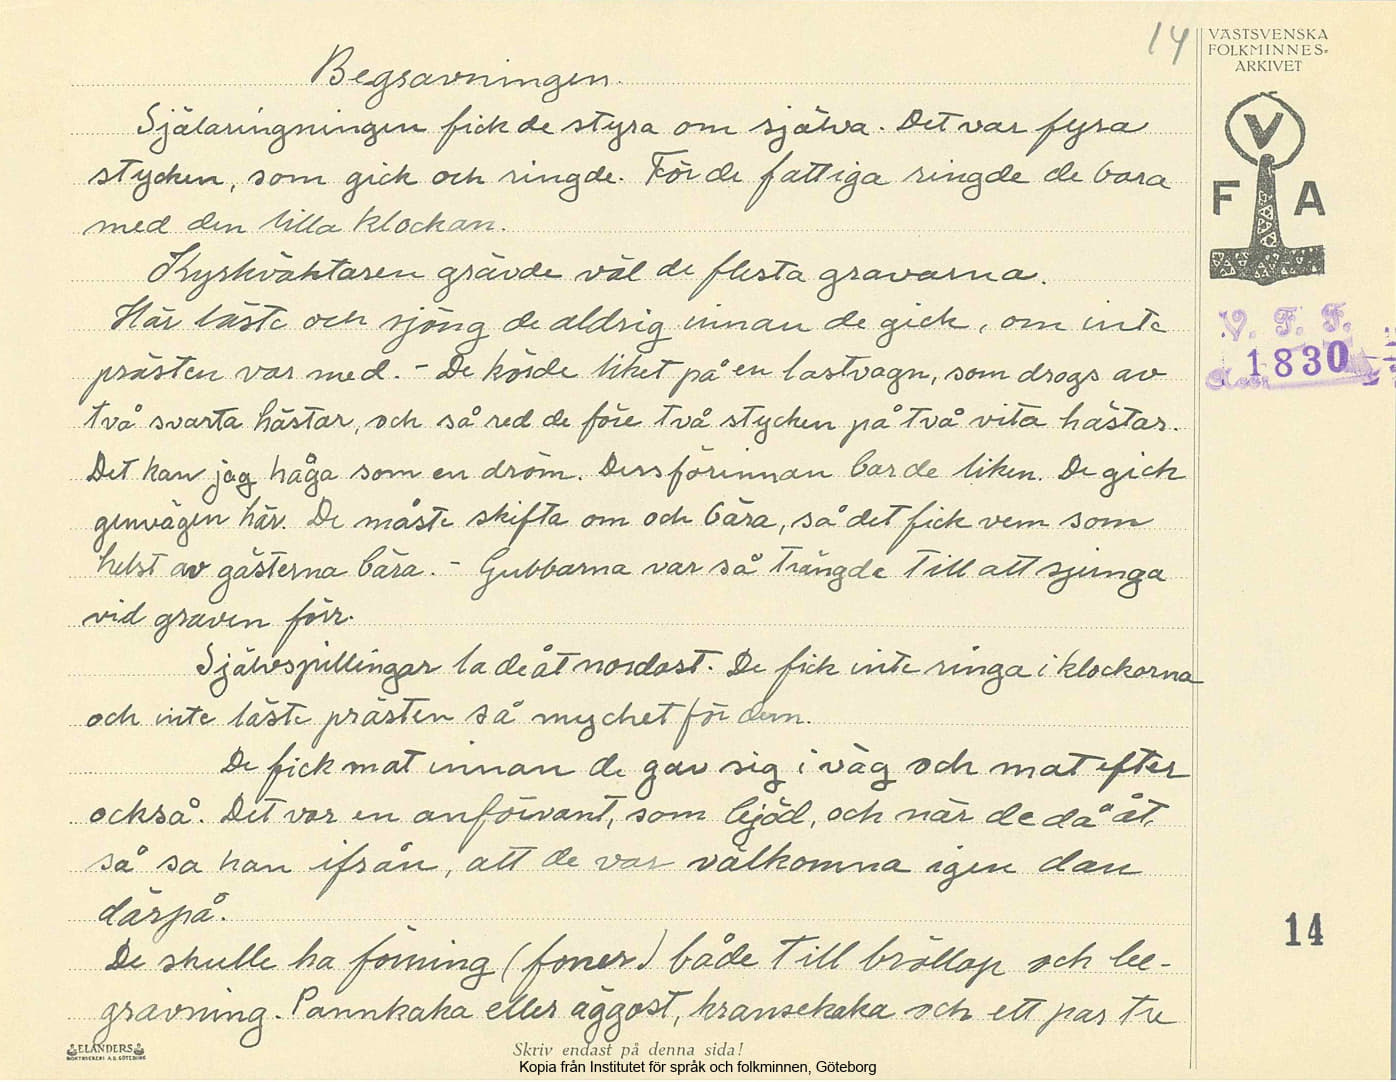 14
VÄSTSVENSKA
FOLKMINNES-
ARKIVET
V
F A
V. F. F.
1830
Begravningen.
Själaringningen fick de styra om själva. Det var fyra
stycken, som gick och ringde. För de fattiga ringde de bara
med den lilla klockan.
Kyrkväktaren grävde väl de flesta gravarna.
Här läste och sjöng de aldrig innan de gick, om inte
prästen var med. - De körde liket på en lastvagn, som drogs av
två svarta hästar, och så red de före två stycken på två vita hästar.
Det kan jag håga som en dröm. Dessförinnan bar de liken. De gick
genvägen här. De måste skifta om och bära, så det fick vem som
helst av gästerna bära. - Gubbarna var så trängde till att sjunga
vid graven förr.
Självspillingar la de åt nordost. De fick inte ringa i klockorna
och inte läste prästen så mycket för dem.
De fick mat innan de gav sig i väg och mat efter
också. Det var en anförvant, som bjöd, och när de då åt,
så sa han ifrån, att de var välkomna igen dan
därpå.
De skulle ha förning (foner) både till bröllop och be-
gravning. Pannkaka eller äggost, kransekaka och ett par tre
14
ELANDERS
BOKTRYCKERI A.B. GÖTEBORG
Skriv endast på denna sida!
Kopia från Institutet för språk och folkminnen, Göteborg